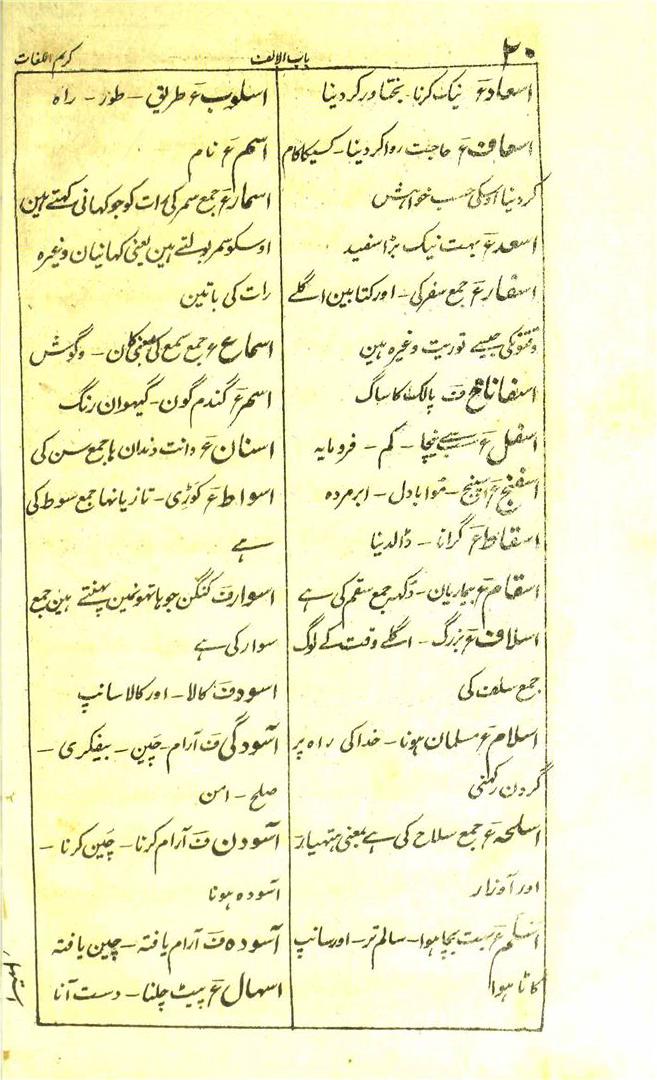 ۲۰ باب الالف کریم اللغات
اسعاد ع نیک کرنا۔ بختاور کردینا
اسعاف ع حاجت روا کردینا۔ کسیکا کام
کردینا اوسکی حسب خواہش
اسعد ع بہت نیک بڑا سفید
اسفار ع جمع سفر کی۔ اور کتابین اگلے
وقتونکی جیسے توریت وغیرہ ہین
اسفاناخ ف پالک کا ساگ
اسفل ع سب سے نیچا۔ کم۔ فرومایہ
اسفنج ع اسپنج۔ موا بادل۔ ابر مردہ
اسقاط ع گرانا۔ ڈالدینا
اسقام ع بیماریان۔ دکھ جمع سقم کی ہے
اسلاف ع بزرگ۔ اگلے وقت کے لوگ
جمع سلف کی
اسلام ع مسلمان ہونا۔ خدا کی راہ پر
گردن رکھنی
اسلحہ ع جمع سلاح کی ہے بمعنی ہتہیار
اور آوزار
اسلم ع بہت بچا ہوا۔ سالم تر۔ اور سانپ
کاٹا ہوا
اسلوب ع طریق۔ طور۔ راہ
اسم ع نام
اسمار ع جمع سمر کی رات کو جو کہانی کہتے ہین
اوسکو سمر بولتے ہین یعنی کہانیان وغیرہ
رات کی باتین
اسماع ع جمع سمع کی بمعنی کان۔ وگوش
اسمر ع گندم گون۔ گیہوان رنگ
اسنان ع دانت دندان ہا جمع سن کی
اسواط ع کوڑی۔ تازیانہا جمع سوط کی
ہے
اسوار ف کنگن جو ہاتہونمین پہنتے ہین جمع
سوار کی ہے
اسود ف کالا۔ اور کالا سانپ
آسودگی ف آرام۔ چین۔ بیفکری۔
صلح۔ امن
آسودن ف آرام کرنا۔ چین کرنا۔
آسودہ ہونا
آسودہ ف آرام یافتہ۔ چین یافتہ
اسہال ع پیٹ چلنا۔ دست آنا